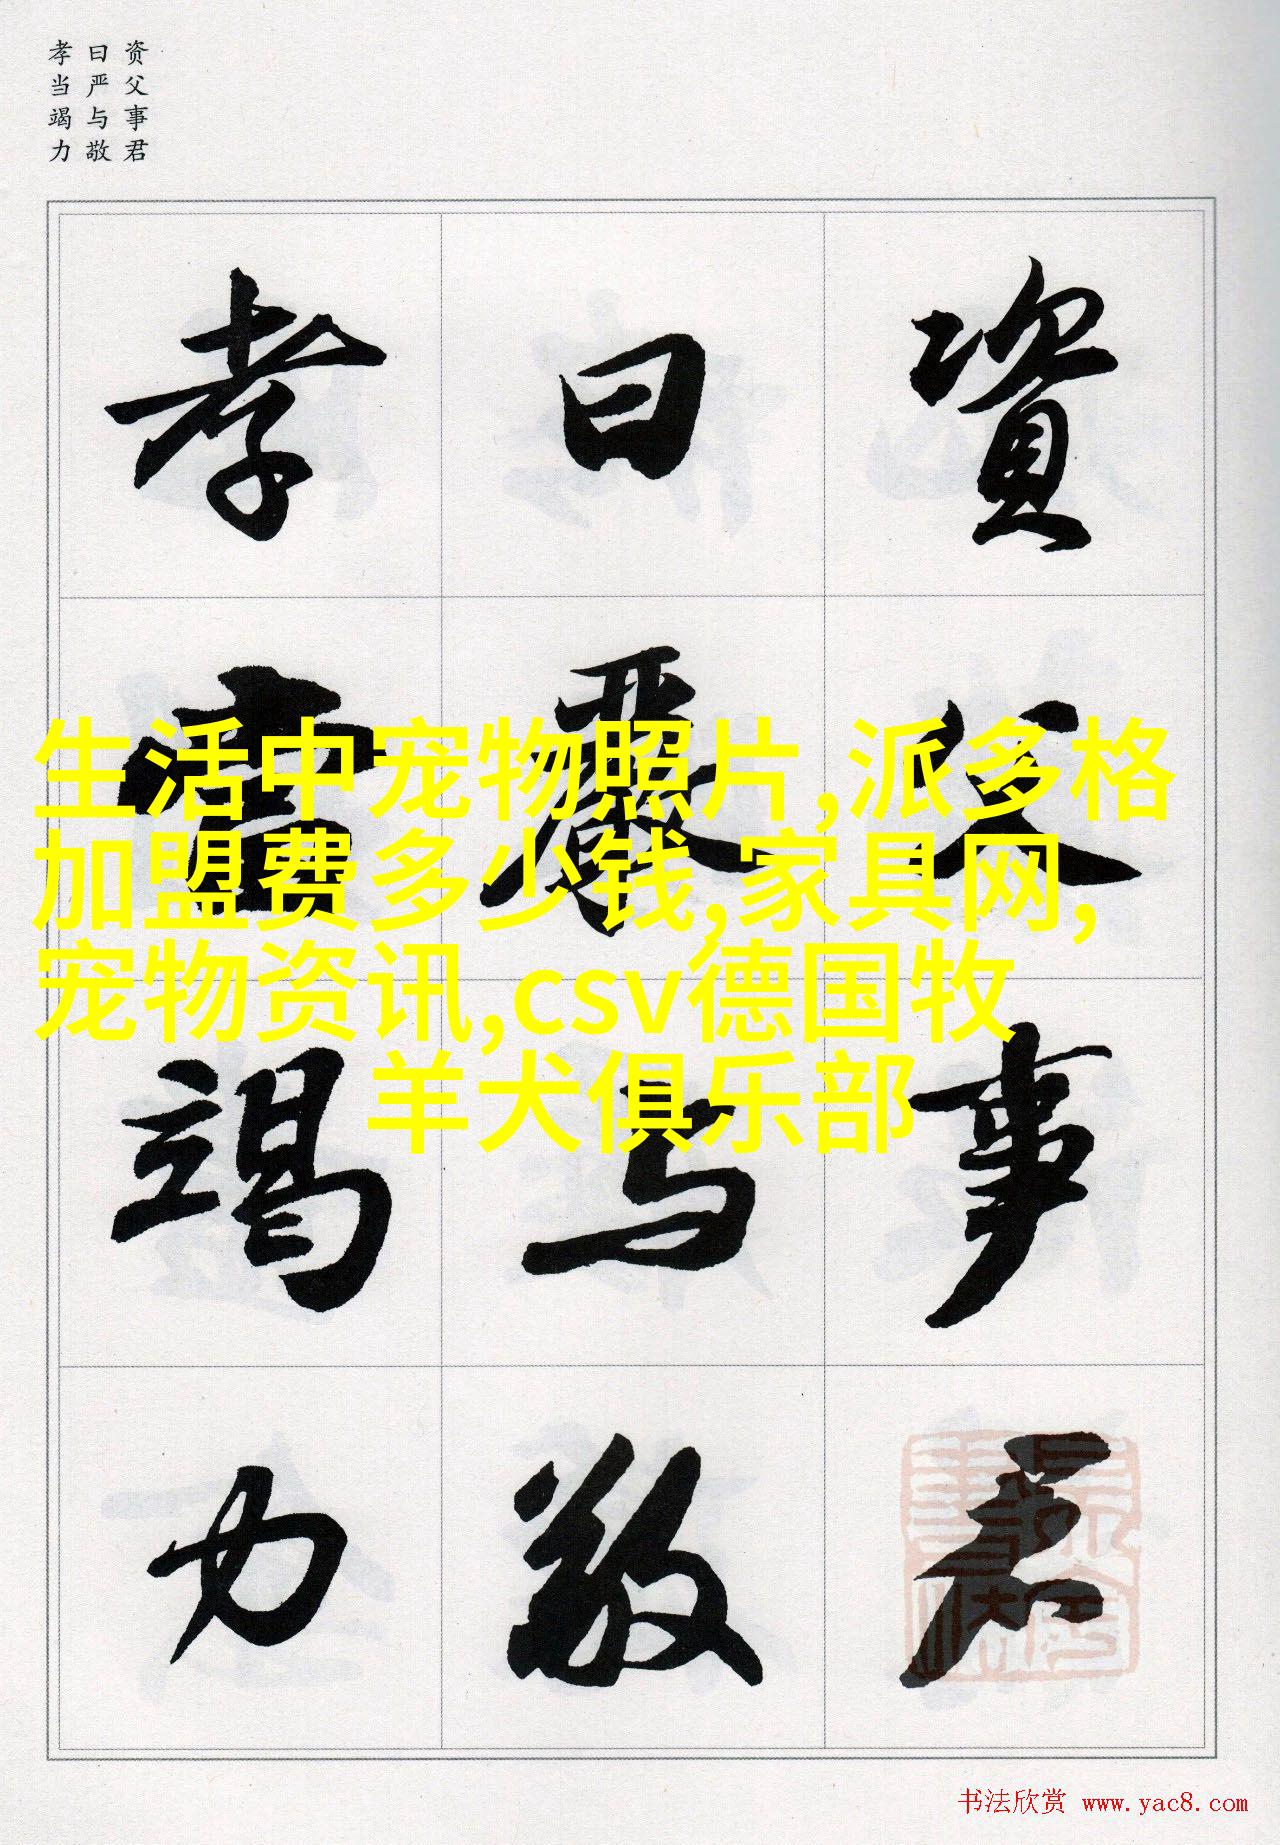 资父事君
曰严与敬
孝当竭力
資父事君
曰嚴与敬
孝當竭力
生活中宠物照片,派多格
加盟费多少钱,家具网,
宠物资讯,csv德国牧
羊犬俱乐部
书法欣赏 www.yac8.com